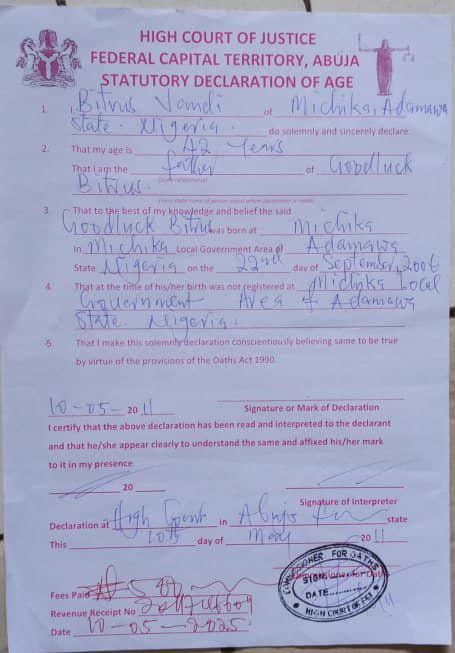 HIGH COURT OF JUSTICE
FEDERAL CAPITAL TERRITORY, ABUJA
STATUTORY DECLARATION OF AGE
1. I, Bitrus Vandi of Michika, Adamawa
State. Nigeria. do solemnly and sincerely declare:
2. That my age is 42 Years
That I am the father of Goodluck
Bitrus.
3. That to the best of my knowledge and belief the said
Goodluck Bitrus was born at Michika
In Michika Local Government Area of Adamawa
State Nigeria on the 22nd day of September, 2006
4. That at the time of his/her birth was not registered at Michika Local
Government Area of Adamawa
State. Nigeria.
5. That I make this solemnly declaration conscientiously believing same to be true
by virtue of the provisions of the Oaths Act 1990.
10-05- 2011
Signature or Mark of Declaration
I certify that the above declaration has been read and interpreted to the declarant
and that he/she appear clearly to understand the same and affixed his/her mark
to it in my presence
20
Signature of Interpreter
Declaration at High Court in Abuja state
This 10th day of May 2011
COMMISSIONER FOR OATHS
SIGN
DATE
HIGH COURT OF FCT
Commissioner for Oaths
Fees Paid
Revenue Receipt No
Date 10-05-2025